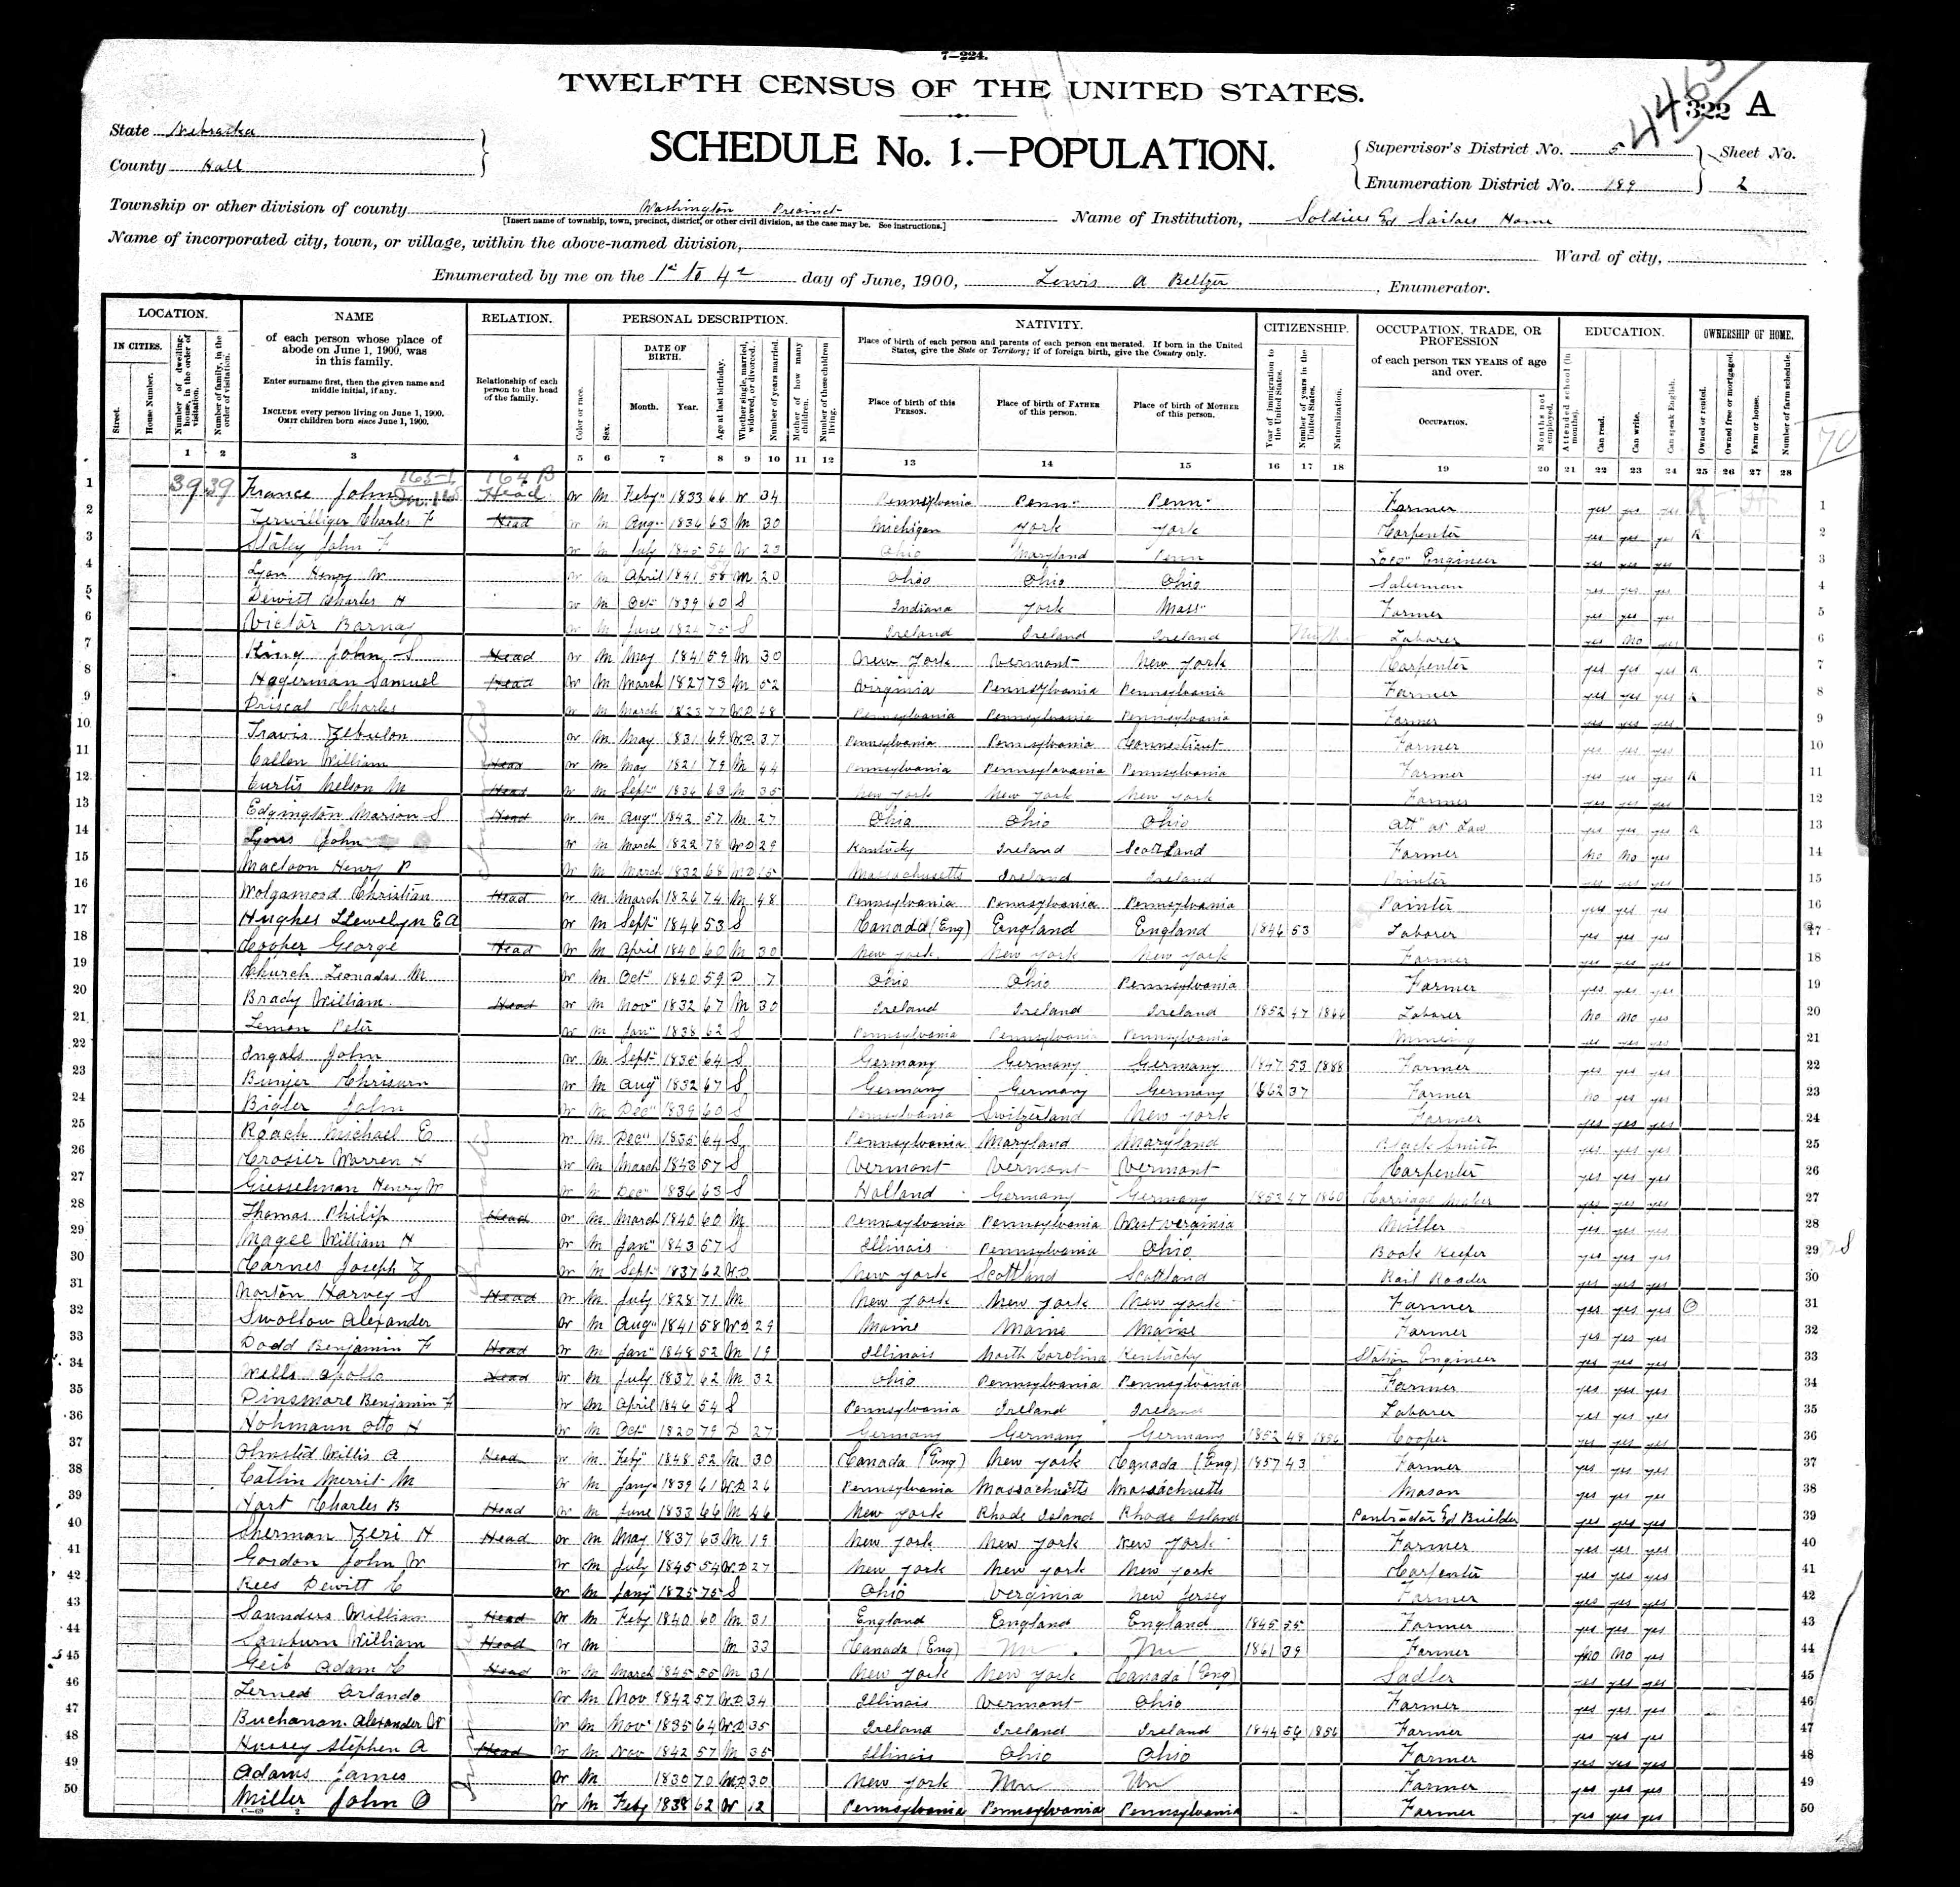 7—224.
TWELFTH CENSUS OF THE UNITED STATES.
322 A
State Nebraska
County Hall
SCHEDULE No. 1.—POPULATION.
Supervisor's District No. 5
Enumeration District No. 189
Sheet No. 2
Township or other division of county Washington Precinct
[Insert name of township, town, precinct, district, or other civil division, as the case may be. See instructions.]
Name of Institution, Soldiers & Sailors Home
Name of incorporated city, town, or village, within the above-named division,
Ward of city,
Enumerated by me on the 1st to 4th day of June, 1900, Lewis A Beltzer, Enumerator.
LOCATION. NAME RELATION. PERSONAL DESCRIPTION. NATIVITY. CITIZENSHIP. OCCUPATION, TRADE, OR PROFESSION EDUCATION. OWNERSHIP OF HOME.
IN CITIES.
Street.
House Number.
Number of dwelling-house, in the order of visitation.
Number of family, in the order of visitation.
of each person whose place of abode on June 1, 1900, was in this family.
Enter surname first, then the given name and middle initial, if any.
INCLUDE every person living on June 1, 1900.
OMIT children born since June 1, 1900.
Relationship of each person to the head of the family.
Color or race.
Sex.
DATE OF BIRTH.
Month. Year.
Age at last birthday.
Whether single, married, widowed, or divorced.
Number of years married.
Mother of how many children.
Number of these children living.
Place of birth of each person and parents of each person enumerated. If born in the United States, give the State or Territory; if of foreign birth, give the Country only.
Place of birth of this PERSON.
Place of birth of FATHER of this person.
Place of birth of MOTHER of this person.
Year of immigration to the United States.
Number of years in the United States.
Naturalization.
of each person TEN YEARS of age and over.
OCCUPATION.
Months not employed.
Attended school (in months).
Can read.
Can write.
Can speak English.
Owned or rented.
Owned free or mortgaged.
Farm or house.
Number of farm schedule.
1 2 3 4 5 6 7 8 9 10 11 12 13 14 15 16 17 18 19 20 21 22 23 24 25 26 27 28
1 39 39 France John Head W M Feby 1833 66 W 34 Pennsylvania Penn Penn Farmer yes yes yes 1
2 Terwilliger Charles F Head W M Aug 1836 63 M 30 Michigan York York Carpenter yes yes yes R 2
3 Staley John F W M July 1845 54 W Ohio Maryland Penn Loco Engineer yes yes yes 3
4 Lyon Henry W W M April 1841 58 M 20 Ohio Ohio Ohio Salesman yes yes yes 4
5 Dewitt Charles H W M Oct 1839 60 S Indiana York Mass Farmer yes yes yes 5
6 Victor Barnay W M June 1824 75 S Ireland Ireland Ireland Laborer yes No yes 6
7 King John S Head W M May 1841 59 M 30 New York Vermont New York Carpenter yes yes yes R 7
8 Hagerman Samuel Head W M March 1827 73 M 52 Virginia Pennsylvania Pennsylvania Farmer yes yes yes R 8
9 Driscal Charles W M March 1823 77 WD 48 Pennsylvania Pennsylvania Pennsylvania Farmer yes yes yes 9
10 Travis Zebulon W M May 1831 69 WD 37 Pennsylvania Pennsylvania Connecticut Farmer yes yes yes 10
11 Callen William Head W M May 1821 79 M 44 Pennsylvania Pennsylavania Pennsylvania Farmer yes yes yes R 11
12 Curtis Nelson M Head W M Sept 1836 63 M 35 New York New York New York Farmer yes yes yes 12
13 Edgington Marion S Head W M Aug 1842 57 M 27 Ohio Ohio Ohio Att at Law yes yes yes R 13
14 Lyons John W M March 1822 78 WD 29 Kentucky Ireland Scottland Farmer No No yes 14
15 Macloon Henry P W M March 1832 68 WD 15 Massachusetts Ireland Ireland Printer yes yes yes 15
16 Wolgamord Christian Head W M March 1826 74 M 48 Pennsylvania Pennsylvania Pennsylvania Painter yes yes yes 16
17 Hughes Llewelyn E A W M Sept 1846 53 S Canada (Eng) England England 1846 53 Laborer yes yes yes 17
18 Cooper George Head W M April 1840 60 M 30 New York New York New York Farmer yes yes yes 18
19 Church Leonadas M W M Oct 1840 59 D 7 Ohio Ohio Pennsylvania Farmer yes yes yes 19
20 Brady William Head W M Nov 1832 67 M 30 Ireland Ireland Ireland 1852 47 1866 Laborer No No yes 20
21 Lemon Peter W M Jan 1838 62 S Pennsylvania Pennsylvania Pennsylvania Mineing yes yes yes 21
22 Ingals John W M Sept 1835 64 S Germany Germany Germany 1847 53 1888 Farmer yes yes yes 22
23 Bunjer W M Aug 1832 67 S Germany Germany Germany 1862 37 Farmer no yes yes 23
24 Bigler John W M Dec 1839 60 S Pennsylvania Switzerland New York Farmer yes yes yes 24
25 Roach Michael E W M Dec 1835 64 S Pennsylvania Maryland Maryland Black Smith yes yes yes 25
26 Crosier Warren H W M March 1843 57 S Vermont Vermont Vermont Carpenter yes yes yes 26
27 Giesselman Henry W W M Dec 1836 63 S Holland Germany Germany 1853 47 1860 Carriage Maker yes yes yes 27
28 Thomas Philip Head W M March 1840 60 M Pennsylvania Pennsylvania West Verginia Miller yes yes yes 28
29 Magee William H W M Jan 1843 57 S Illinois Pennsylvania Ohio Book Keefer yes yes yes 29
30 Carnes Joseph Z W M Sept 1837 62 WD New York Scottland Scottland Rail Roader yes yes yes 30
31 Norton Harvey S Head W M July 1828 71 M New York New York New York Farmer yes yes yes O 31
32 Swollow Alexander W M Aug 1841 58 WD 29 Maine Maine Maine Farmer yes yes yes 32
33 Dodd Benjamin F Head W M Jan 1848 52 M 19 Illinois North Carolina Kentucky Station Engineer yes yes yes 33
34 Wells Apollo Head W M July 1837 62 M 32 Ohio Pennsylvania Pennsylvania Farmer yes yes yes 34
35 Dinsmore Benjamin F W M April 1846 54 S Pennsylvania Ireland Ireland Laborer yes yes yes 35
36 Hohmann Otto H W M Oct 1820 79 D 27 Germany Germany Germany 1852 48 1856 Cooper yes yes yes 36
37 Olmsted Willis A Head W M Feby 1848 52 M 30 Canada (Eng) New York Canada (Eng) 1857 43 Farmer yes yes yes 37
38 Catlin Merrit M W M Jany 1839 61 WD 26 Pennsylvania Massachuetts Massachuetts Mason yes yes yes 38
39 Hart Charles B Head W M June 1833 66 M 46 New York Rhode Island Rhode Island Contractor & Builder yes yes yes 39
40 Sherman Zeri H Head W M May 1837 63 M 19 New York New York New York Farmer yes yes yes 40
41 Gordon John W W M July 1845 54 WD 27 New York New York New York Carpenter yes yes yes 41
42 Rees Dewitt C W M Jany 1825 75 S Ohio Verginia New Jersey Farmer yes yes yes 42
43 Saunders William Head W M Feby 1840 60 M 31 England England England 1845 55 Farmer yes yes yes 43
44 Sanburn William Head W M M 33 Canada (Eng) Un Un 1861 39 Farmer No No yes 44
45 Geib Adam C Head W M March 1845 55 M 31 New York New York Canada (Eng) Sadler yes yes yes 45
46 Lerned Orlando W M Nov 1842 57 WD 34 Illinois Vermont Ohio Farmer yes yes yes 46
47 Buchanan Alexander W W M Nov 1835 64 WD 35 Ireland Ireland Ireland 1844 56 1856 Farmer yes yes yes 47
48 Hussey Stephen A Head W M Nov 1842 57 M 35 Illinois Ohio Ohio Farmer yes yes yes 48
49 Adams James W M 1830 70 WD 30 New York Un Un Farmer yes yes yes 49
50 Miller John O W M Feby 1838 62 W 12 Pennsylvania Pennsylvania Pennsylvania Farmer yes yes yes 50